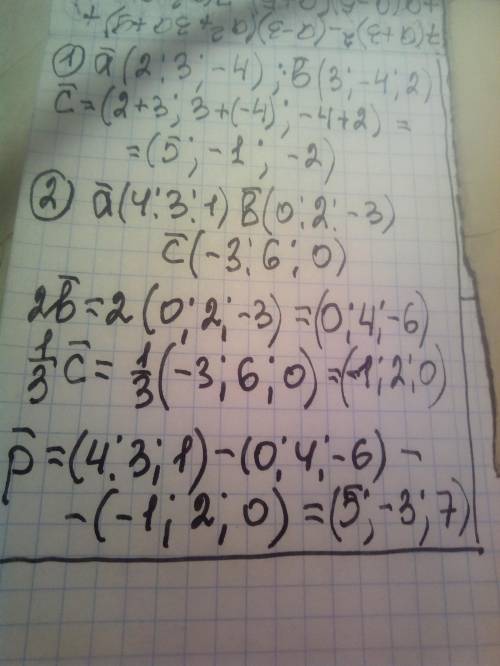 ① a̅(2; 3; -4); B̅(3; -4; 2)
c̅ = (2+3; 3+(-4); -4+2) =
= (5; -1; -2)
② a̅(4; 3; 1) B̅(0; 2; -3)
c̅(-3; 6; 0)
2B̅ = 2(0; 2; -3) = (0; 4; -6)
1/3 c̅ = 1/3(-3; 6; 0) = (-1; 2; 0)
p̅ = (4; 3; 1) - (0; 4; -6) -
- (-1; 2; 0) = (5; -3; 7)